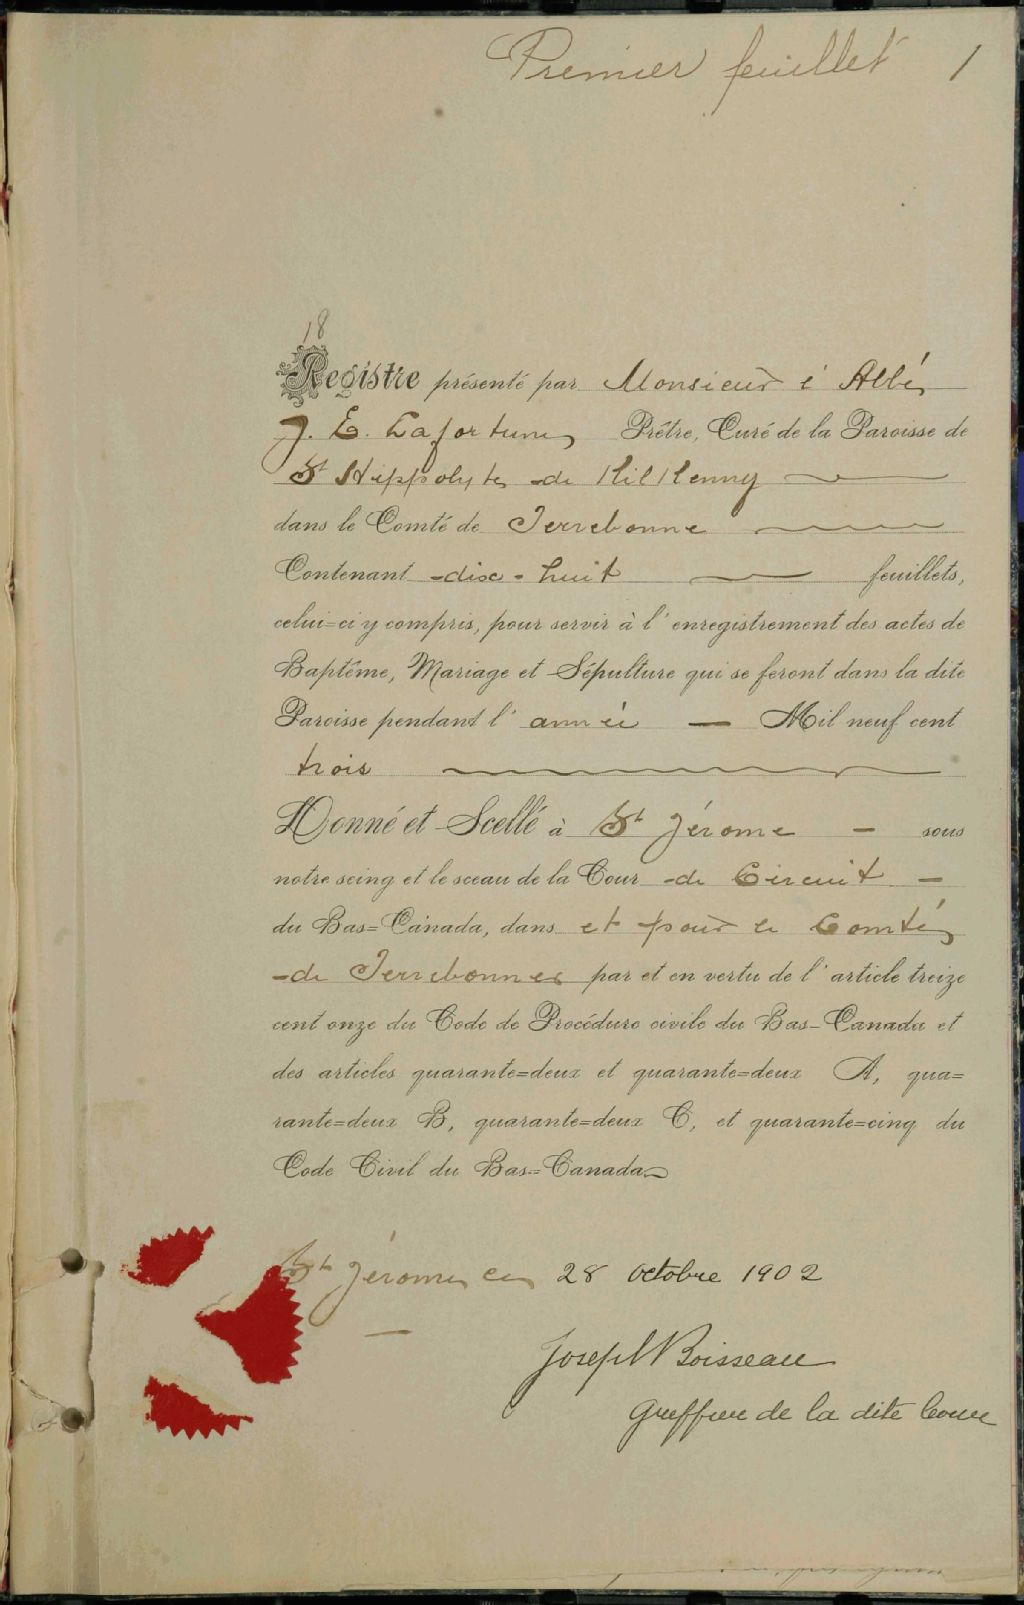 Premier feuillet 1
18
Registre présenté par Monsieur l'Abbé
J. E. Lafortune Prêtre, Curé de la Paroisse de
St Hippolyte de Kilkenny
dans le Comté de Terrebonne
Contenant dix-huit feuillets,
celui=ci y compris, pour servir à l'enregistrement des actes de
Baptême, Mariage et Sépulture qui se feront dans la dite
Paroisse pendant l'année — Mil neuf cent
trois
Donné et Scellé à St Jérome — sous
notre seing et le sceau de la Cour de Circuit —
du Bas=Canada, dans et pour le Comté
de Terrebonne par et en vertu de l'article treize
cent onze du Code de Procédure civile du Bas-Canada et
des articles quarante=deux et quarante=deux A, qua=
rante=deux B, quarante=deux C, et quarante=cinq du
Code Civil du Bas=Canada
St Jérome ce 28 octobre 1902
Joseph Boisseau
Greffier de la dite Cour